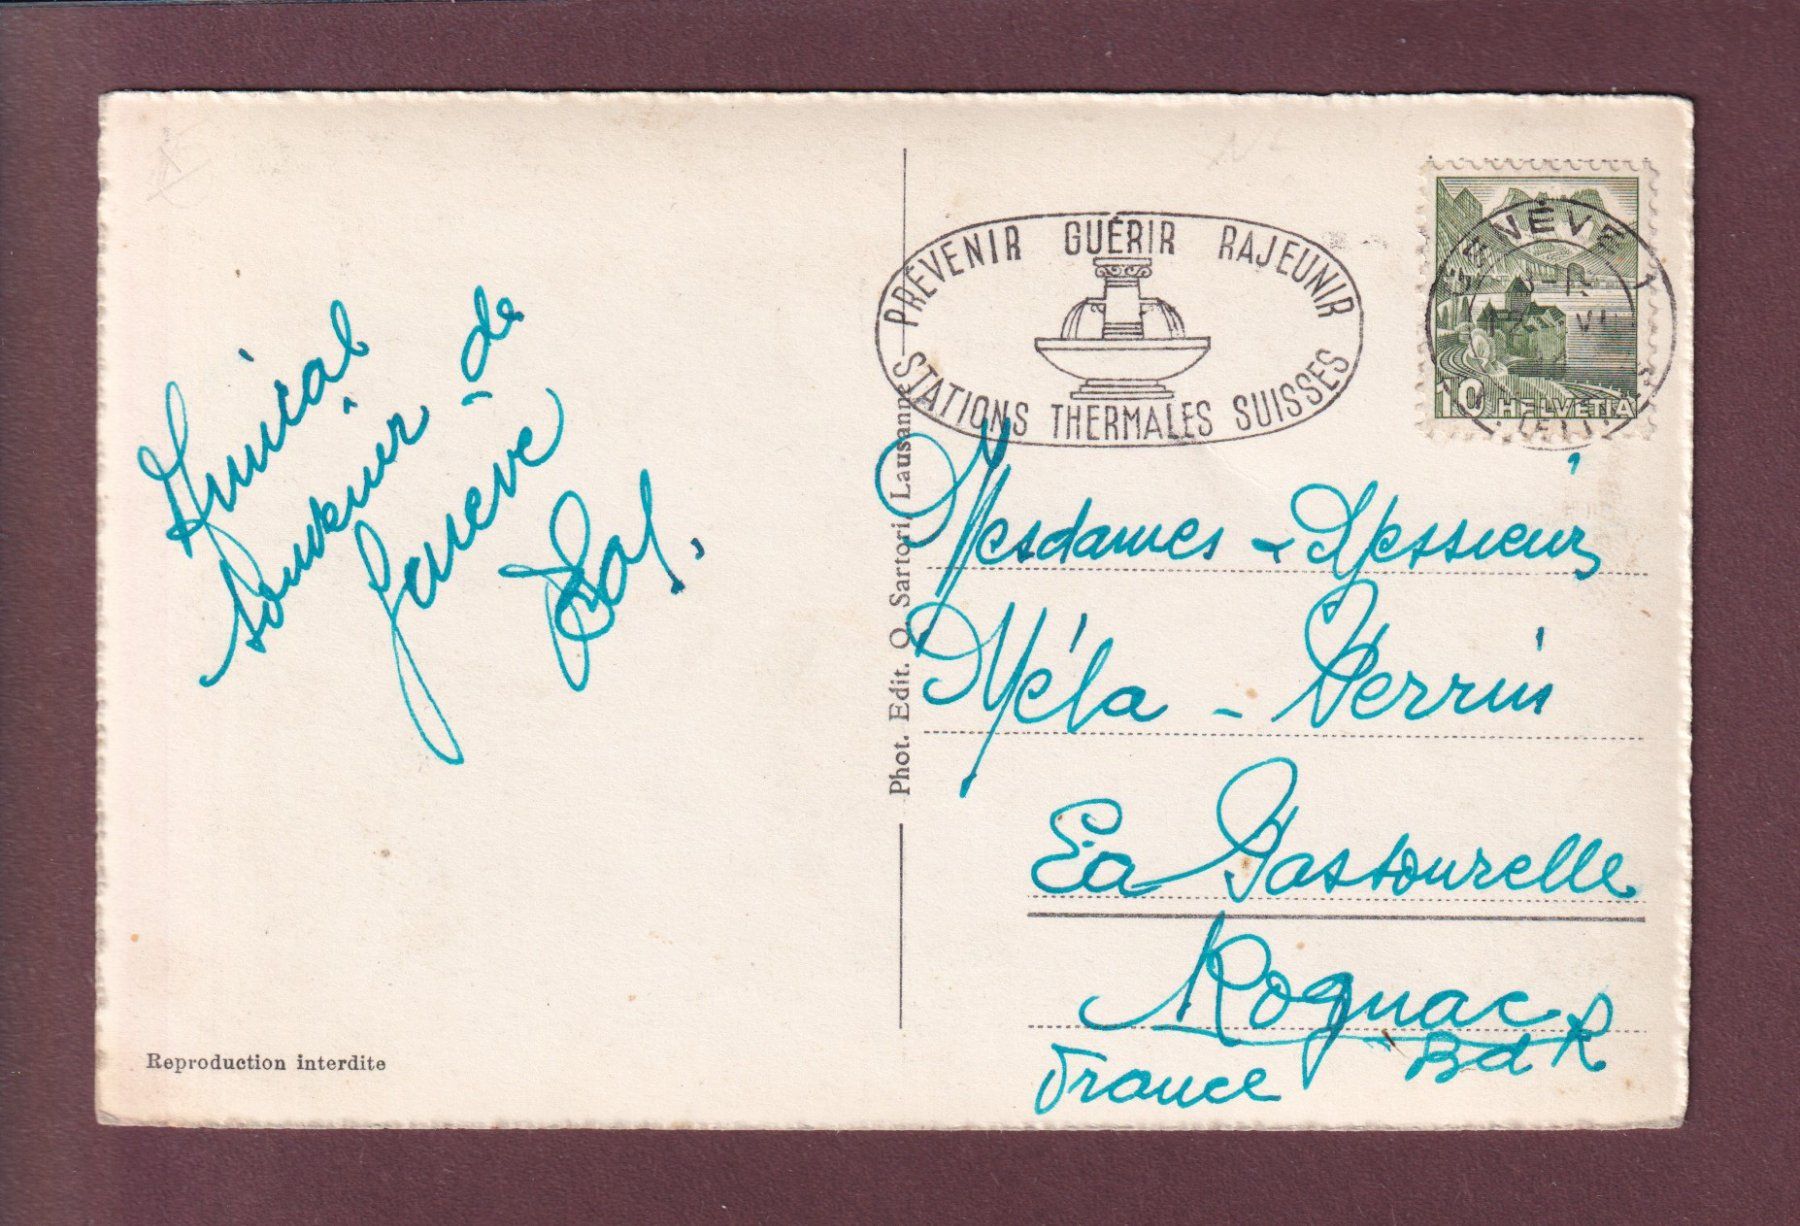 Amical
souvenir de
Genève
Reproduction interdite
Phot. Edit. O. Sartori, Lausanne
PRÉVENIR GUÉRIR RAJEUNIR
STATIONS THERMALES SUISSES
GENÈVE 1
10 HELVETIA
Mesdames - Messieurs
Méla - Perrin
La Pastourelle
Rognac
BdR
France